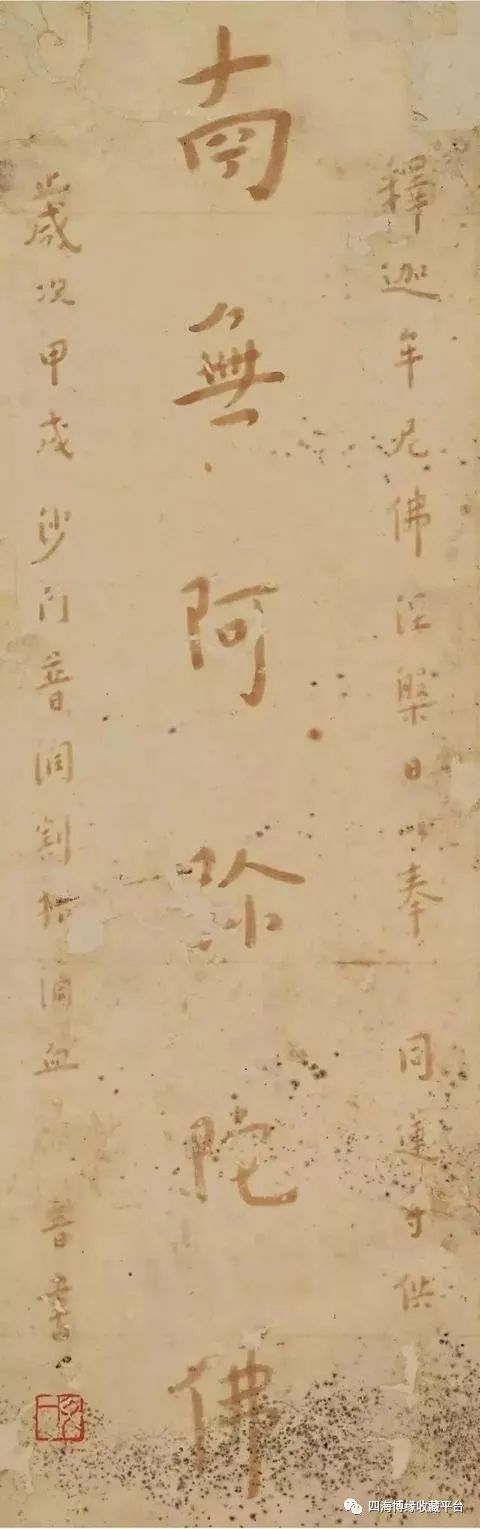 釋迦牟尼佛涅槃日以奉 同蓮 供
南無阿弥陀佛
歲次甲戌沙门普润割指 血 音書
四海博缘收藏平台